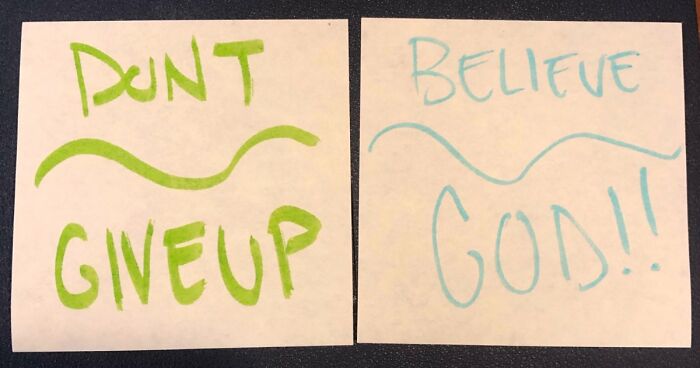 DONT
GIVEUP
BELIEVE
GOD!!